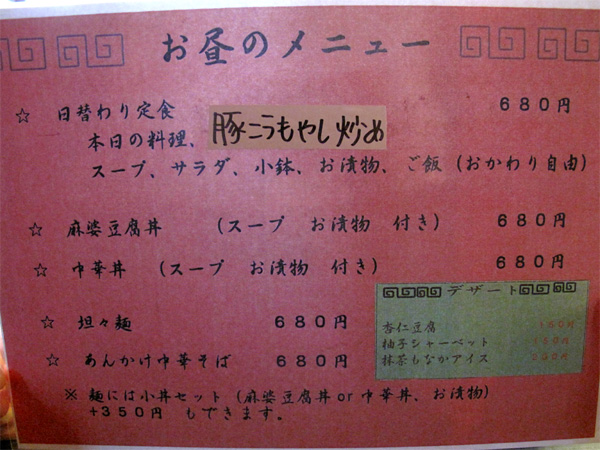 お昼のメニュー
☆ 日替わり定食 680円
本日の料理、豚ニラもやし炒め
スープ、サラダ、小鉢、お漬物、ご飯(おかわり自由)
☆ 麻婆豆腐丼 (スープ お漬物 付き) 680円
☆ 中華丼 (スープ お漬物 付き) 680円
☆ 坦々麺 680円
☆ あんかけ中華そば 680円
※ 麺には小丼セット(麻婆豆腐丼or中華丼、お漬物)
+350円 もできます。
デザート
杏仁豆腐 150円
柚子シャーベット 150円
抹茶もなかアイス